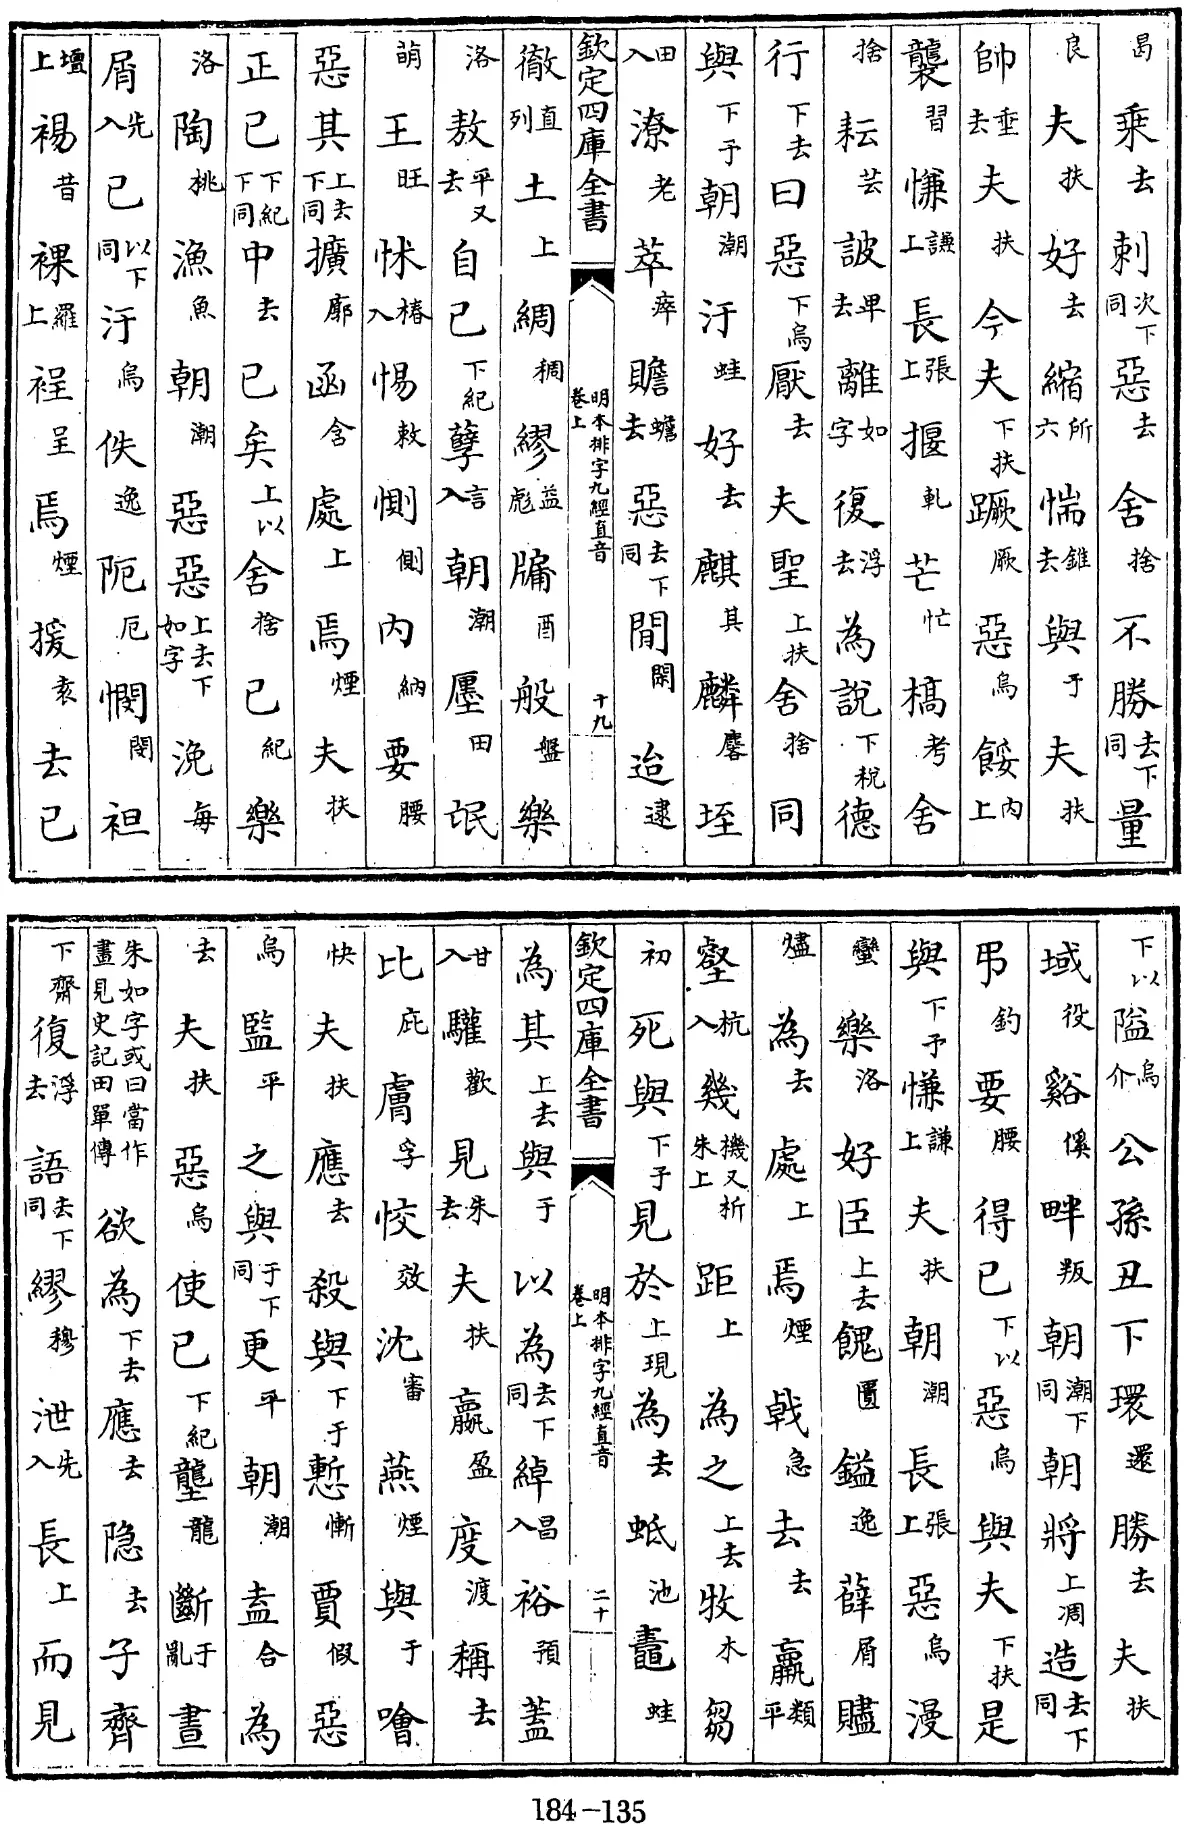 曷乗去刺次下同惡去舍捨不勝去下同量
良夫扶好去縮所六惴錐去與于夫扶
帥垂去夫扶今夫下扶蹶厥惡烏餒內上
襲習慊謙上長張上揠軋芒忙槁考舍
捨耘芸詖卑去離如字復浮去為說下稅德
行下去曰惡下烏厭去夫聖上扶舍捨同
與下予朝潮汙蛙好去麒其麟麐垤
田入潦老萃瘁贍蟾去惡去下同閒閑迨逮
欽定四庫全書 明本排字九經直音卷上 十九
徹直列土上綢稠繆益彪牖酉般盤樂
洛敖平又去自己下紀孽言入朝潮廛田氓
萌王旺怵椿入惕敕惻側內納要腰
惡其上去下同擴廓函含處上焉煙夫扶
正己下紀下同中去已矣上以舍捨己紀樂
洛陶桃漁魚朝潮惡惡上去下如字浼每
屑先入已以下同汙烏佚逸阨厄憫閔袒
壇上裼昔裸羅上裎呈焉煙援袁去已
下以隘烏介公孫丑下環還勝去夫扶
域役谿傒畔叛朝潮下同朝將上凋造去下同
弔釣要腰得已下以惡烏與夫下扶是
與下予慊謙上夫扶朝潮長張上惡烏漫
蠻樂洛好臣上去餽匱鎰逸薛屑贐
燼為去處上焉煙戟急去去羸類平
壑杭入幾機又析朱上距上為之上去牧木芻
初死與下子見於上現為去蚳池鼃蛙
欽定四庫全書 明本排字九經直音卷上 二十
為其上去與于以為去下同綽昌入裕預蓋
甘入驩歡見朱去夫扶嬴盈度渡稱去
比庇膚孚恔效沈審燕煙與于噲
快夫扶應去殺與下于慙慚賈假惡
烏監平之與于下同更平朝潮盍合為
去夫扶惡烏使己下紀壟龍斷于亂晝
朱如字或曰當作畫見史記田單傳欲為下去應去隱去子齊
下齊復浮去語去下同繆穆泄先入長上而見
184-135